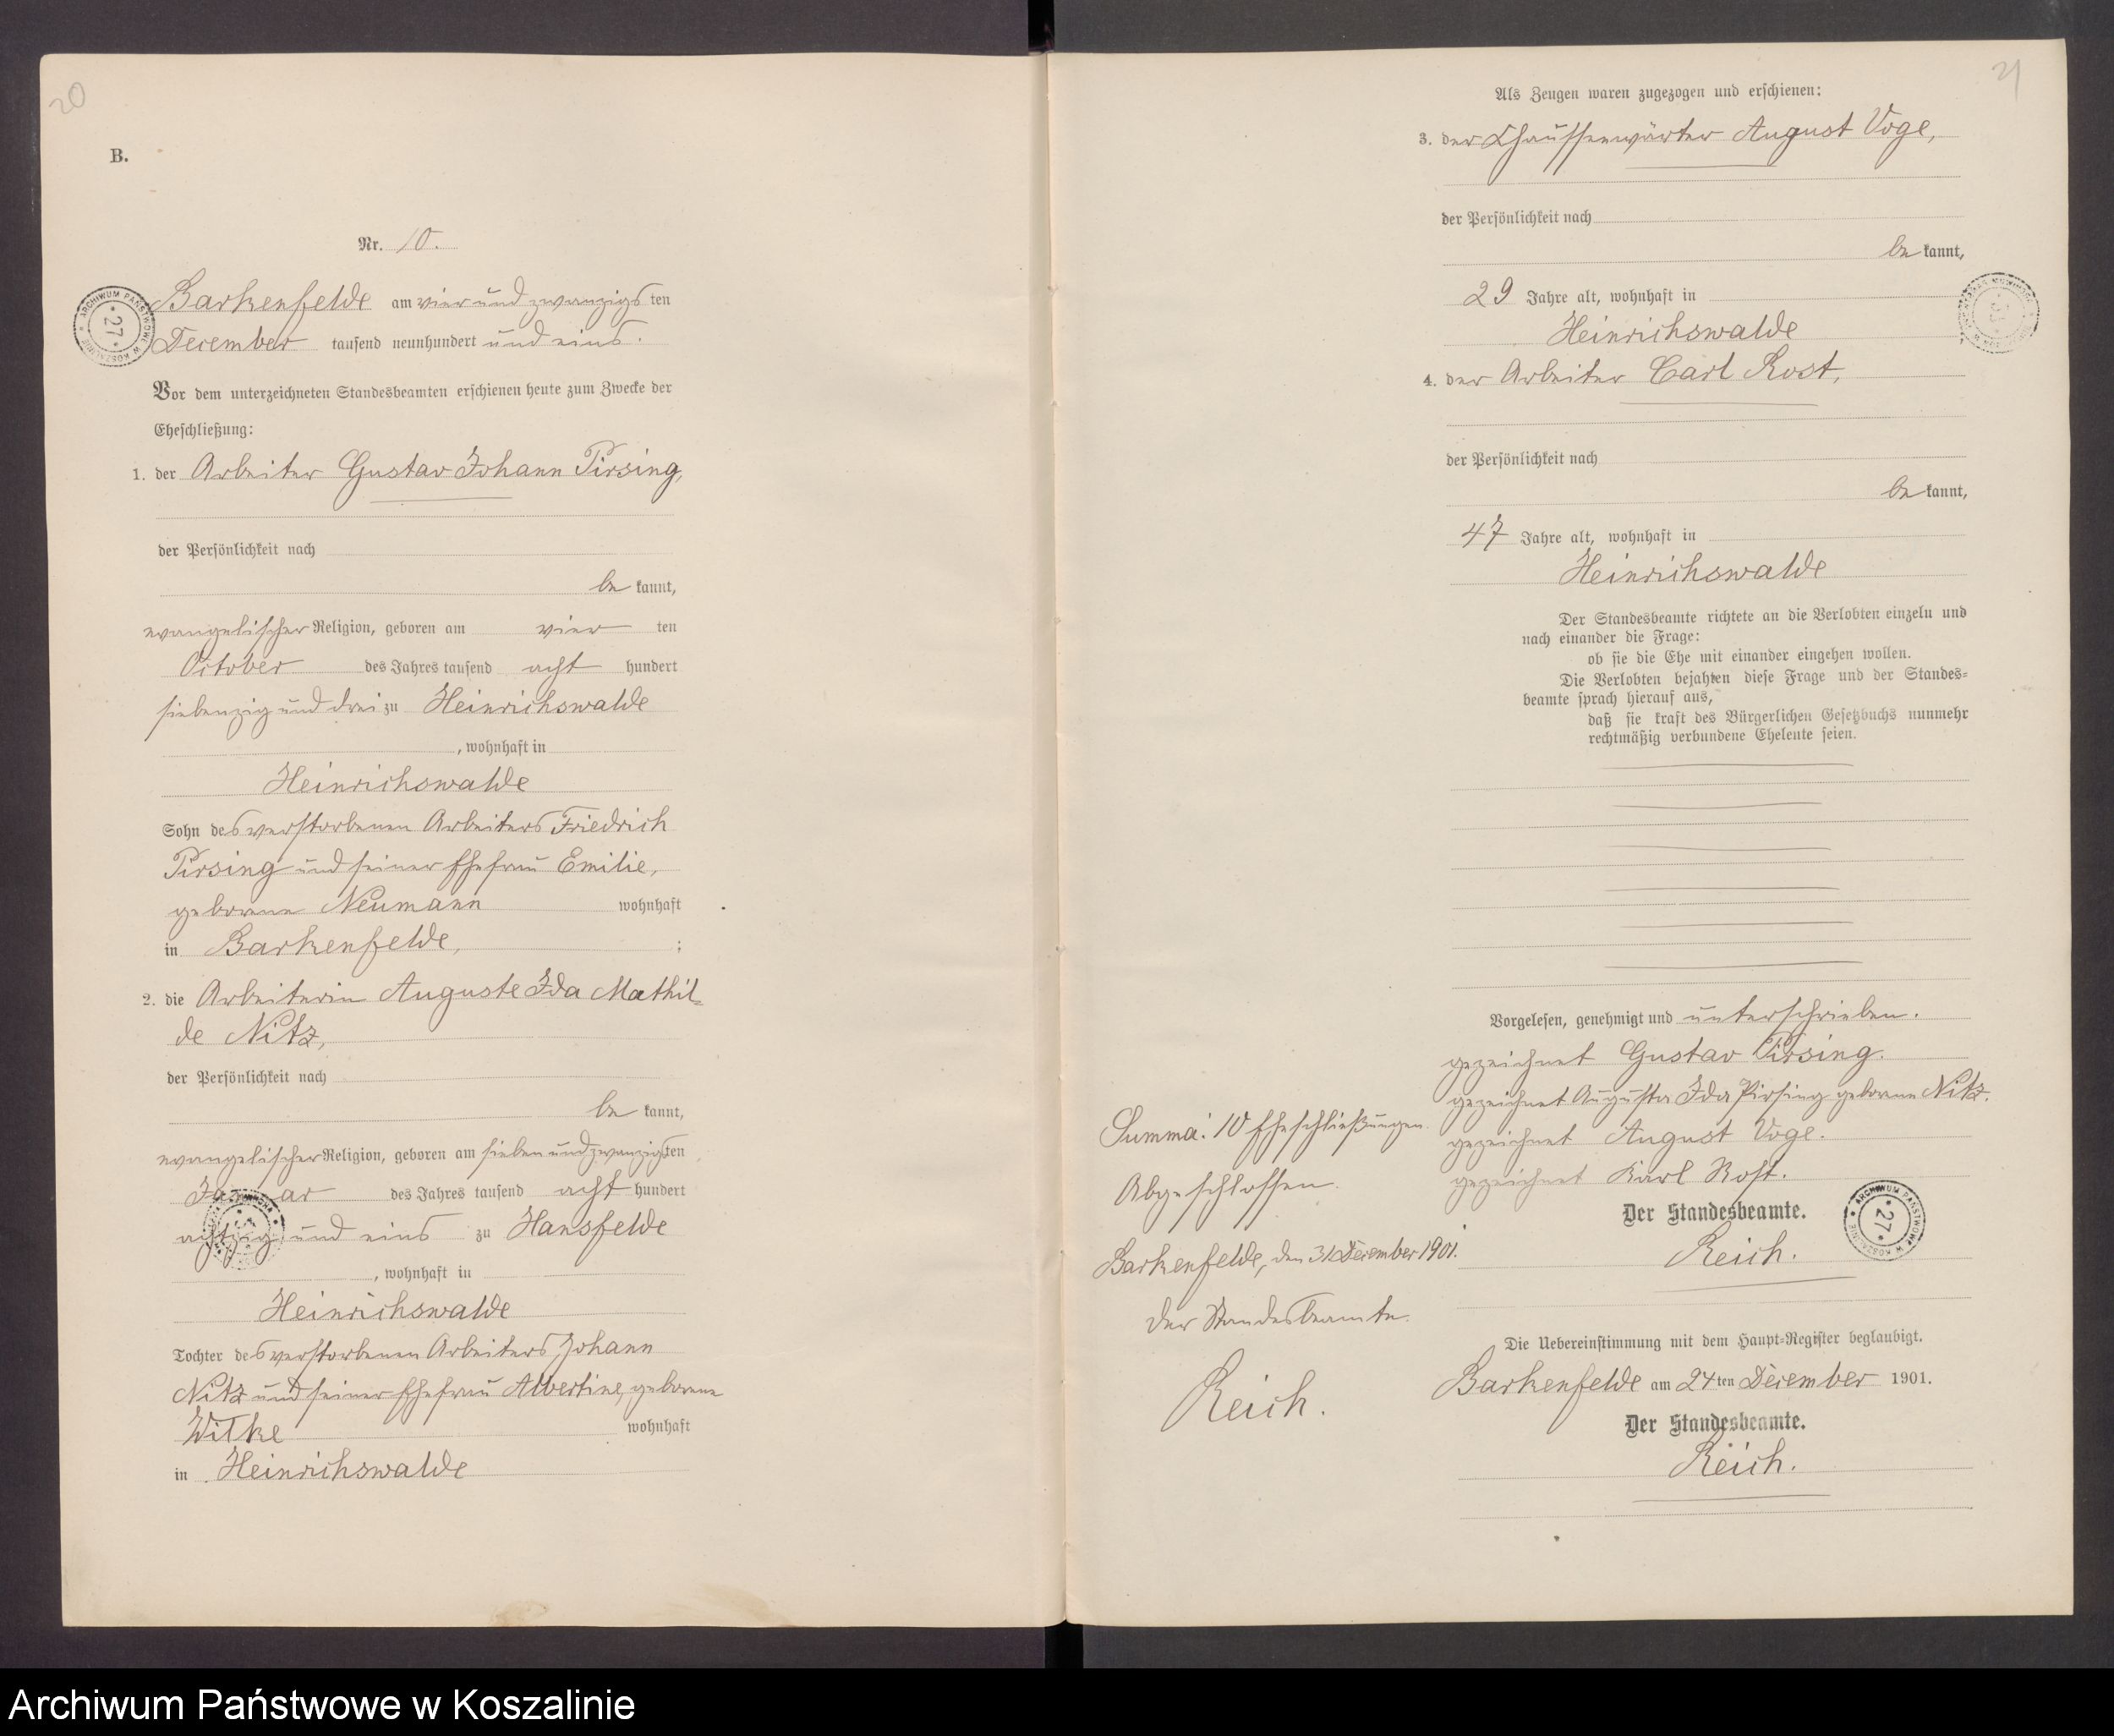 20
B.
Nr. 10.
Barkenfelde am vier und zwanzigs ten
December tausend neunhundert und eins.
Vor dem unterzeichneten Standesbeamten erschienen heute zum Zwecke der
Eheschließung:
1. der Arbeiter Gustav Johann Pirsing,
der Persönlichkeit nach
be kannt,
evangelischer Religion, geboren am vier ten
October des Jahres tausend acht hundert
siebenzig und drei zu Heinrichswalde
, wohnhaft in
Heinrichswalde
Sohn des verstorbenen Arbeiters Friedrich
Pirsing und seiner Ehefrau Emilie,
geborene Neumann wohnhaft
in Barkenfelde, ;
2. die Arbeiterin Auguste Ida Mathil=
de Nitz,
der Persönlichkeit nach
be kannt,
evangelischer Religion, geboren am sieben und zwanzigsten
Januar des Jahres tausend acht hundert
achtzig und eins zu Hansfelde
, wohnhaft in
Heinrichswalde
Tochter des verstorbenen Arbeiters Johann
Nitz und seiner Ehefrau Albertine, geborene
Witke wohnhaft
in Heinrichswalde
21
Als Zeugen waren zugezogen und erschienen:
3. der Chausseewärter August Voge,
der Persönlichkeit nach
be kannt,
29 Jahre alt, wohnhaft in
Heinrichswalde
4. der Arbeiter Carl Rost,
der Persönlichkeit nach
be kannt,
47 Jahre alt, wohnhaft in
Heinrichswalde
Der Standesbeamte richtete an die Verlobten einzeln und
nach einander die Frage:
ob sie die Ehe mit einander eingehen wollen.
Die Verlobten bejahten diese Frage und der Standes=
beamte sprach hierauf aus,
daß sie kraft des Bürgerlichen Gesetzbuchs nunmehr
rechtmäßig verbundene Eheleute seien.
Vorgelesen, genehmigt und unterschrieben.
gezeichnet Gustav Pirsing.
gezeichnet Auguste Ida Pirsing geborene Nitz.
gezeichnet August Voge.
gezeichnet Karl Rost.
Der Standesbeamte.
Reich.
Summa: 10 Eheschließungen.
Abgeschlossen.
Barkenfelde, den 31 December 1901.
Der Standesbeamte.
Reich.
Die Uebereinstimmung mit dem Haupt=Register beglaubigt.
Barkenfelde am 24 ten December 1901.
Der Standesbeamte.
Reich.
ARCHIWUM PAŃSTWOWE W KOSZALINIE
27
ARCHIWUM PAŃSTWOWE W KOSZALINIE
27
Archiwum Państwowe w Koszalinie